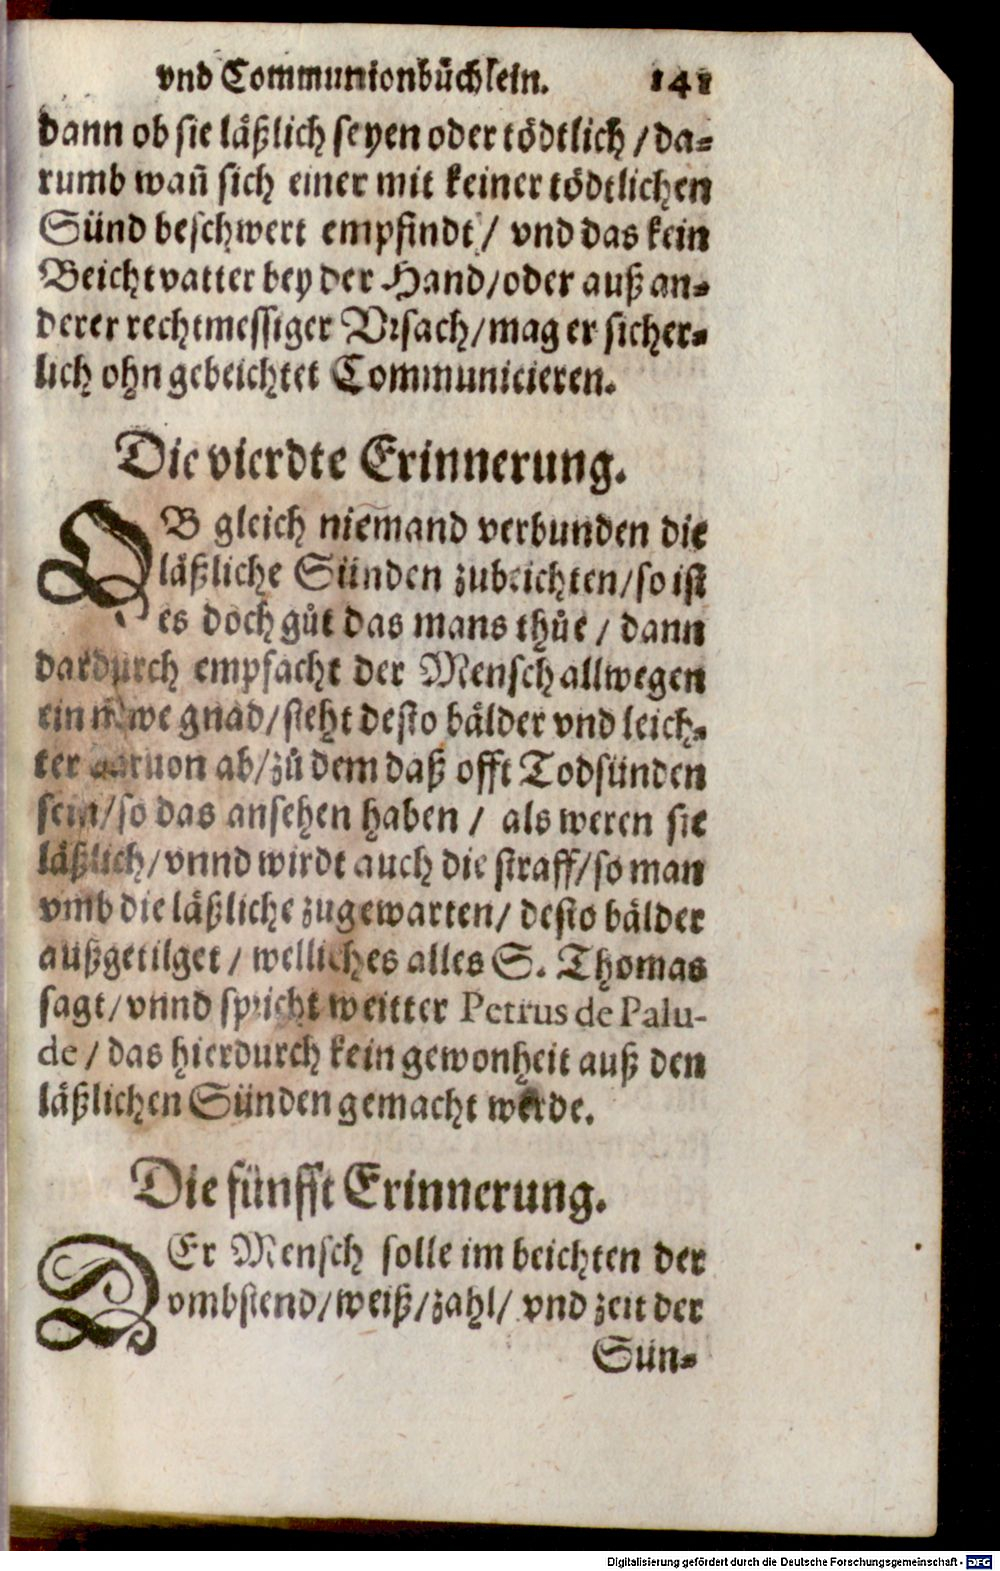 vnd Communionbüchlein. 141
dann ob sie läßlich seyen oder tödtlich / da-
rumb wañ sich einer mit keiner tödtlichen
Sünd beschwert empfindt / vnd das kein
Beichtvatter bey der Hand / oder auß an-
derer rechtmessiger Vrsach / mag er sicher-
lich ohn gebeichtet Communicieren.
Die vierdte Erinnerung.
OB gleich niemand verbunden die
läßliche Sünden zubeichten / so ist
es doch gůt das mans thůe / dann
dardurch empfacht der Mensch allwegen
ein newe gnad / steht desto bälder vnd leich-
ter daruon ab / zů dem daß offt Todsünden
sein / so das ansehen haben / als weren sie
läßlich / vnnd wirdt auch die straff / so man
vmb die läßliche zugewarten / desto bälder
außgetilget / welliches alles S. Thomas
sagt / vnnd spricht weitter Petrus de Palu-
de / das hierdurch kein gewonheit auß den
läßlichen Sünden gemacht werde.
Die fünfft Erinnerung.
DEr Mensch solle im beichten der
vmbstend / weiß / zahl / vnd zeit der
Sün-
Digitalisierung gefördert durch die Deutsche Forschungsgemeinschaft - DFG